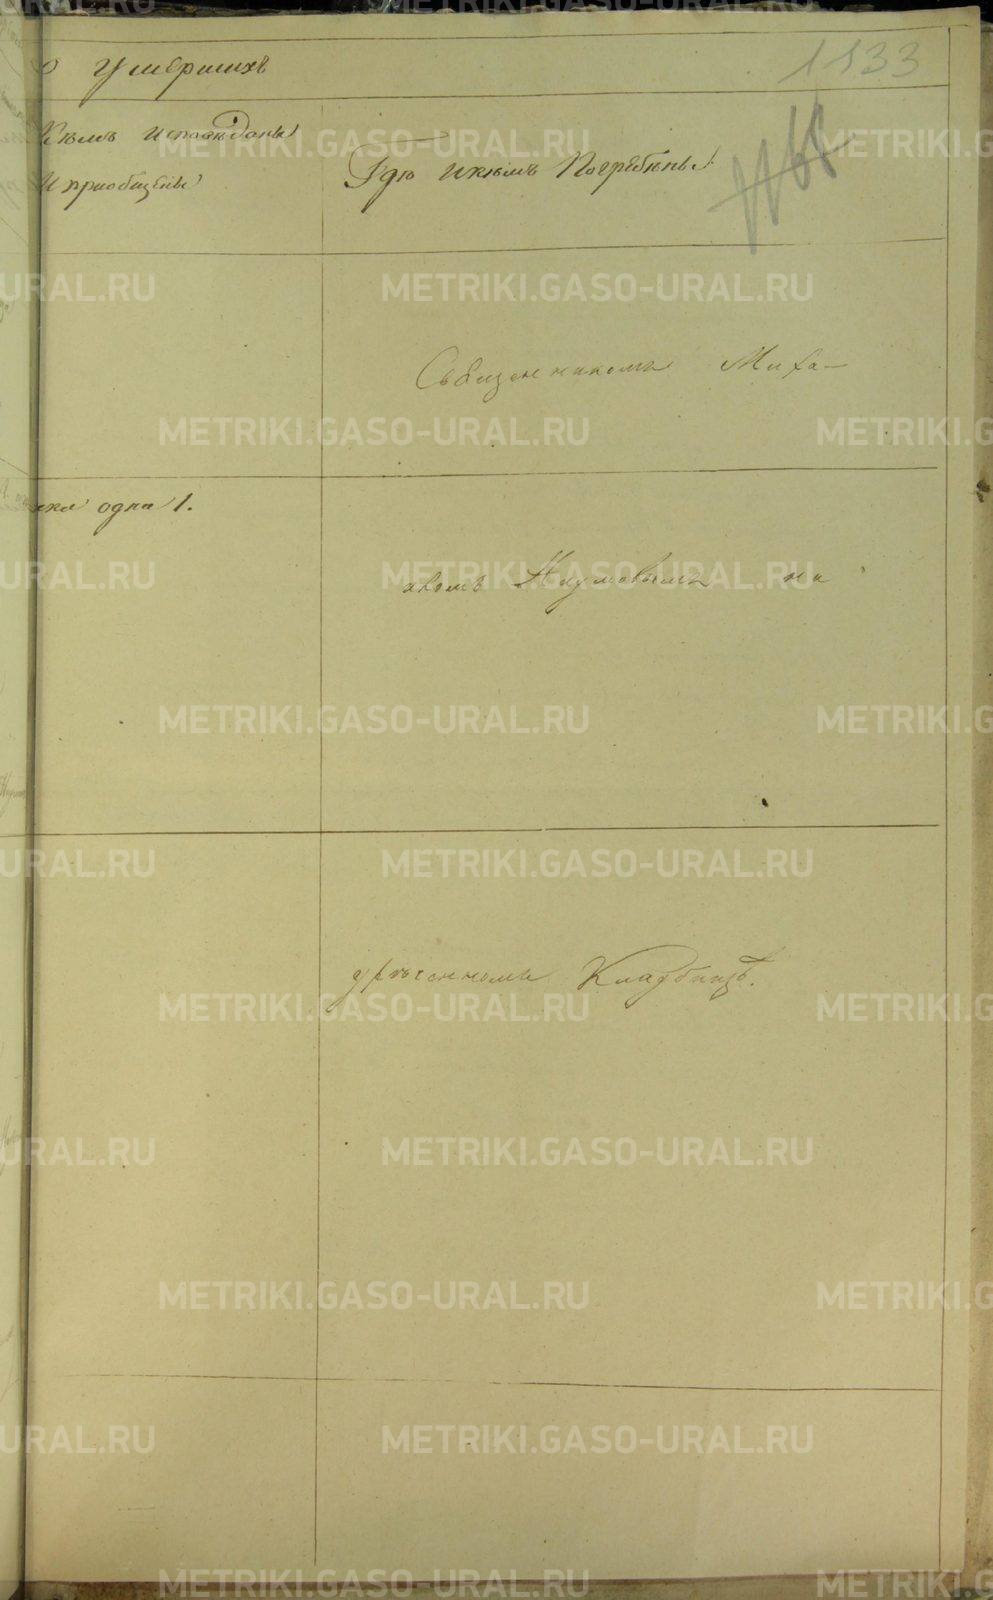 о Умершихъ
1133
Кѣмъ исповѣданы
И приобщены
Гдѣ И кѣмъ Погребены
1165
Священникомъ Миха-
одна 1.
иломъ Наумовымъ на
уреченномъ Кладбищѣ.
METRIKI.GASO-URAL.RU